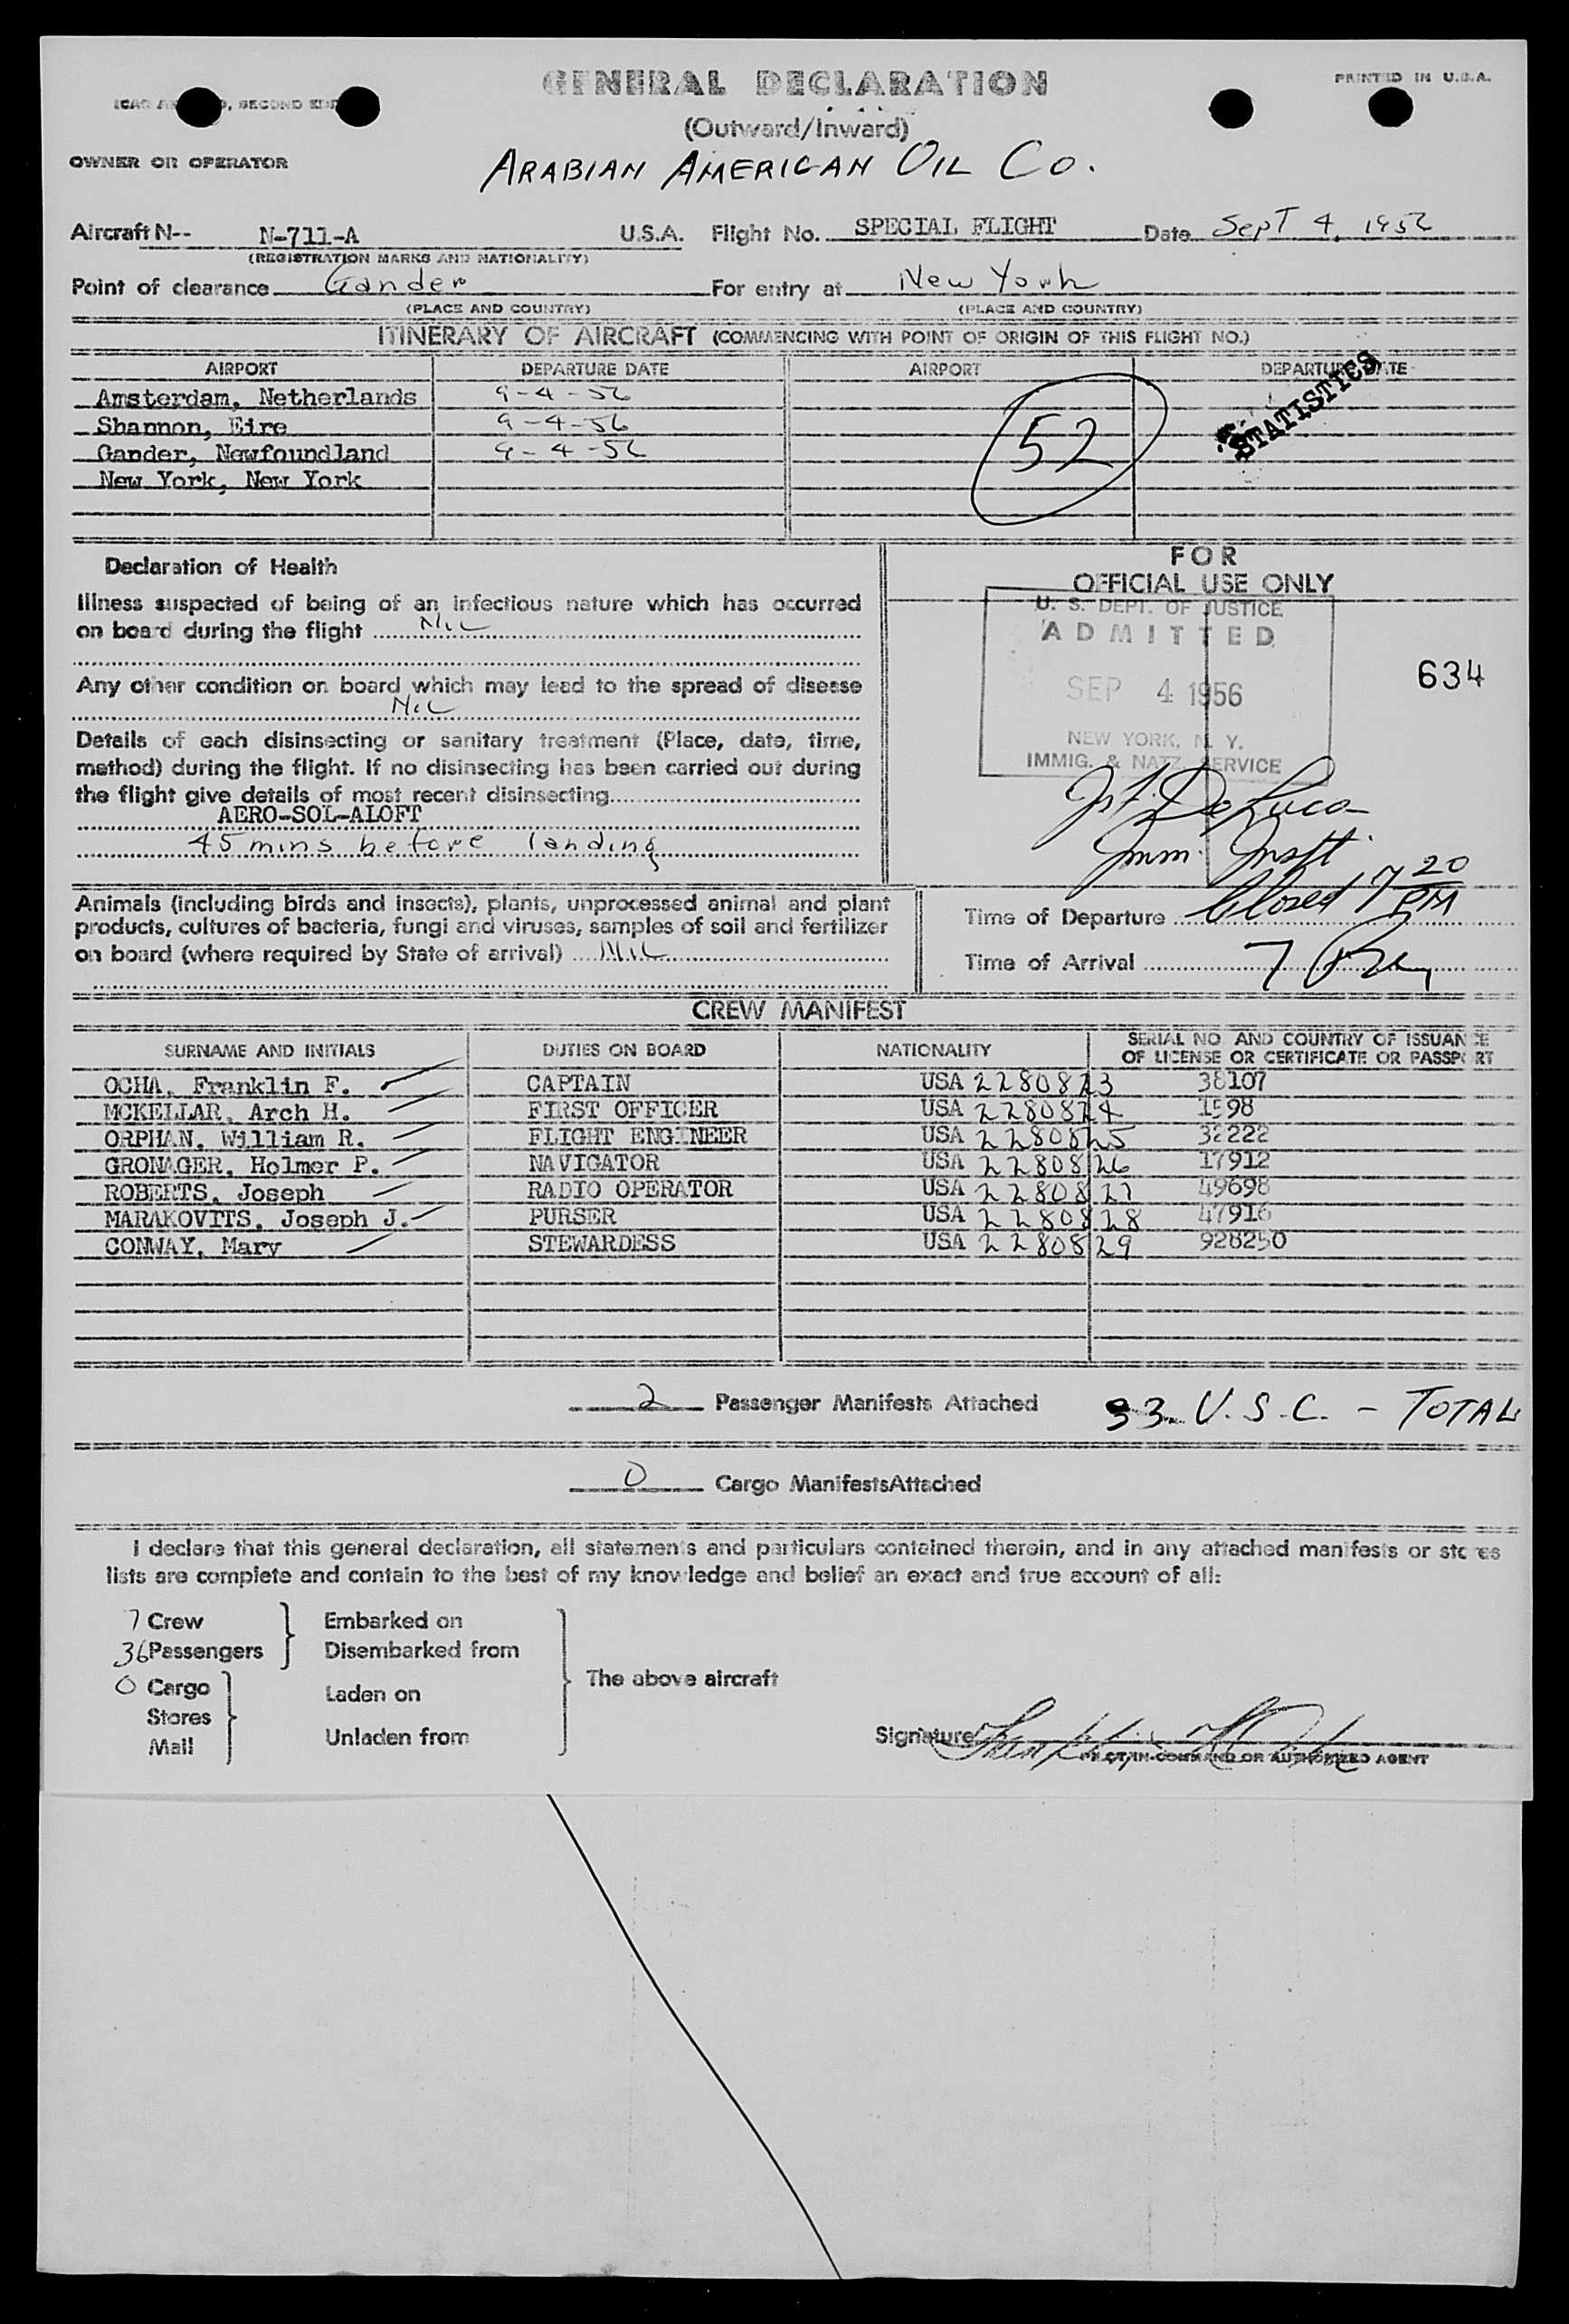 GENERAL DECLARATION
PRINTED IN U.S.A.
ICAO, SECOND
(Outward/Inward)
OWNER OR OPERATOR ARABIAN AMERICAN OIL CO.
Aircraft N-- N-711-A U.S.A. Flight No. SPECIAL FLIGHT Date Sept 4, 1956
(REGISTRATION MARKS AND NATIONALITY)
Point of clearance Gander For entry at New York
(PLACE AND COUNTRY) (PLACE AND COUNTRY)
ITINERARY OF AIRCRAFT (COMMENCING WITH POINT OF ORIGIN OF THIS FLIGHT NO.)
AIRPORT DEPARTURE DATE AIRPORT DEPARTURE DATE
Amsterdam, Netherlands 9-4-56
Shannon, Eire 9-4-56
Gander, Newfoundland 9-4-56
New York, New York
52
STATISTICS
Declaration of Health
Illness suspected of being of an infectious nature which has occurred
on board during the flight Nil
Any other condition on board which may lead to the spread of disease
Nil
Details of each disinsecting or sanitary treatment (Place, date, time,
method) during the flight. If no disinsecting has been carried out during
the flight give details of most recent disinsecting
AERO-SOL-ALOFT
45 mins before landing
FOR
OFFICIAL USE ONLY
U. S. DEPT. OF JUSTICE
ADMITTED
SEP 4 1956
NEW YORK, N. Y.
IMMIG. & NATZ. SERVICE
634
DeLuca
Imm. Inspt.
Animals (including birds and insects), plants, unprocessed animal and plant
products, cultures of bacteria, fungi and viruses, samples of soil and fertilizer
on board (where required by State of arrival) Nil
Time of Departure Closed 7 20 PM
Time of Arrival 7
CREW MANIFEST
SURNAME AND INITIALS DUTIES ON BOARD NATIONALITY SERIAL NO AND COUNTRY OF ISSUANCE
OF LICENSE OR CERTIFICATE OR PASSPORT
OCHA, Franklin F. CAPTAIN USA 2280823 38107
MCKELLAR, Arch H. FIRST OFFICER USA 2280824 1598
ORPHAN, William R. FLIGHT ENGINEER USA 2280825 32222
GRONAGER, Holmer P. NAVIGATOR USA 2280826 17912
ROBERTS, Joseph RADIO OPERATOR USA 2280827 49698
MARAKOVITS, Joseph J. PURSER USA 2280828 47916
CONWAY, Mary STEWARDESS USA 2280829 928250
2 Passenger Manifests Attached 33 U.S.C. - TOTAL
0 Cargo Manifests Attached
I declare that this general declaration, all statements and particulars contained therein, and in any attached manifests or stores
lists are complete and contain to the best of my knowledge and belief an exact and true account of all:
7 Crew Embarked on
36 Passengers Disembarked from
The above aircraft
0 Cargo Laden on
Stores
Mail Unladen from
Signature
PILOT-IN-COMMAND OR AUTHORIZED AGENT